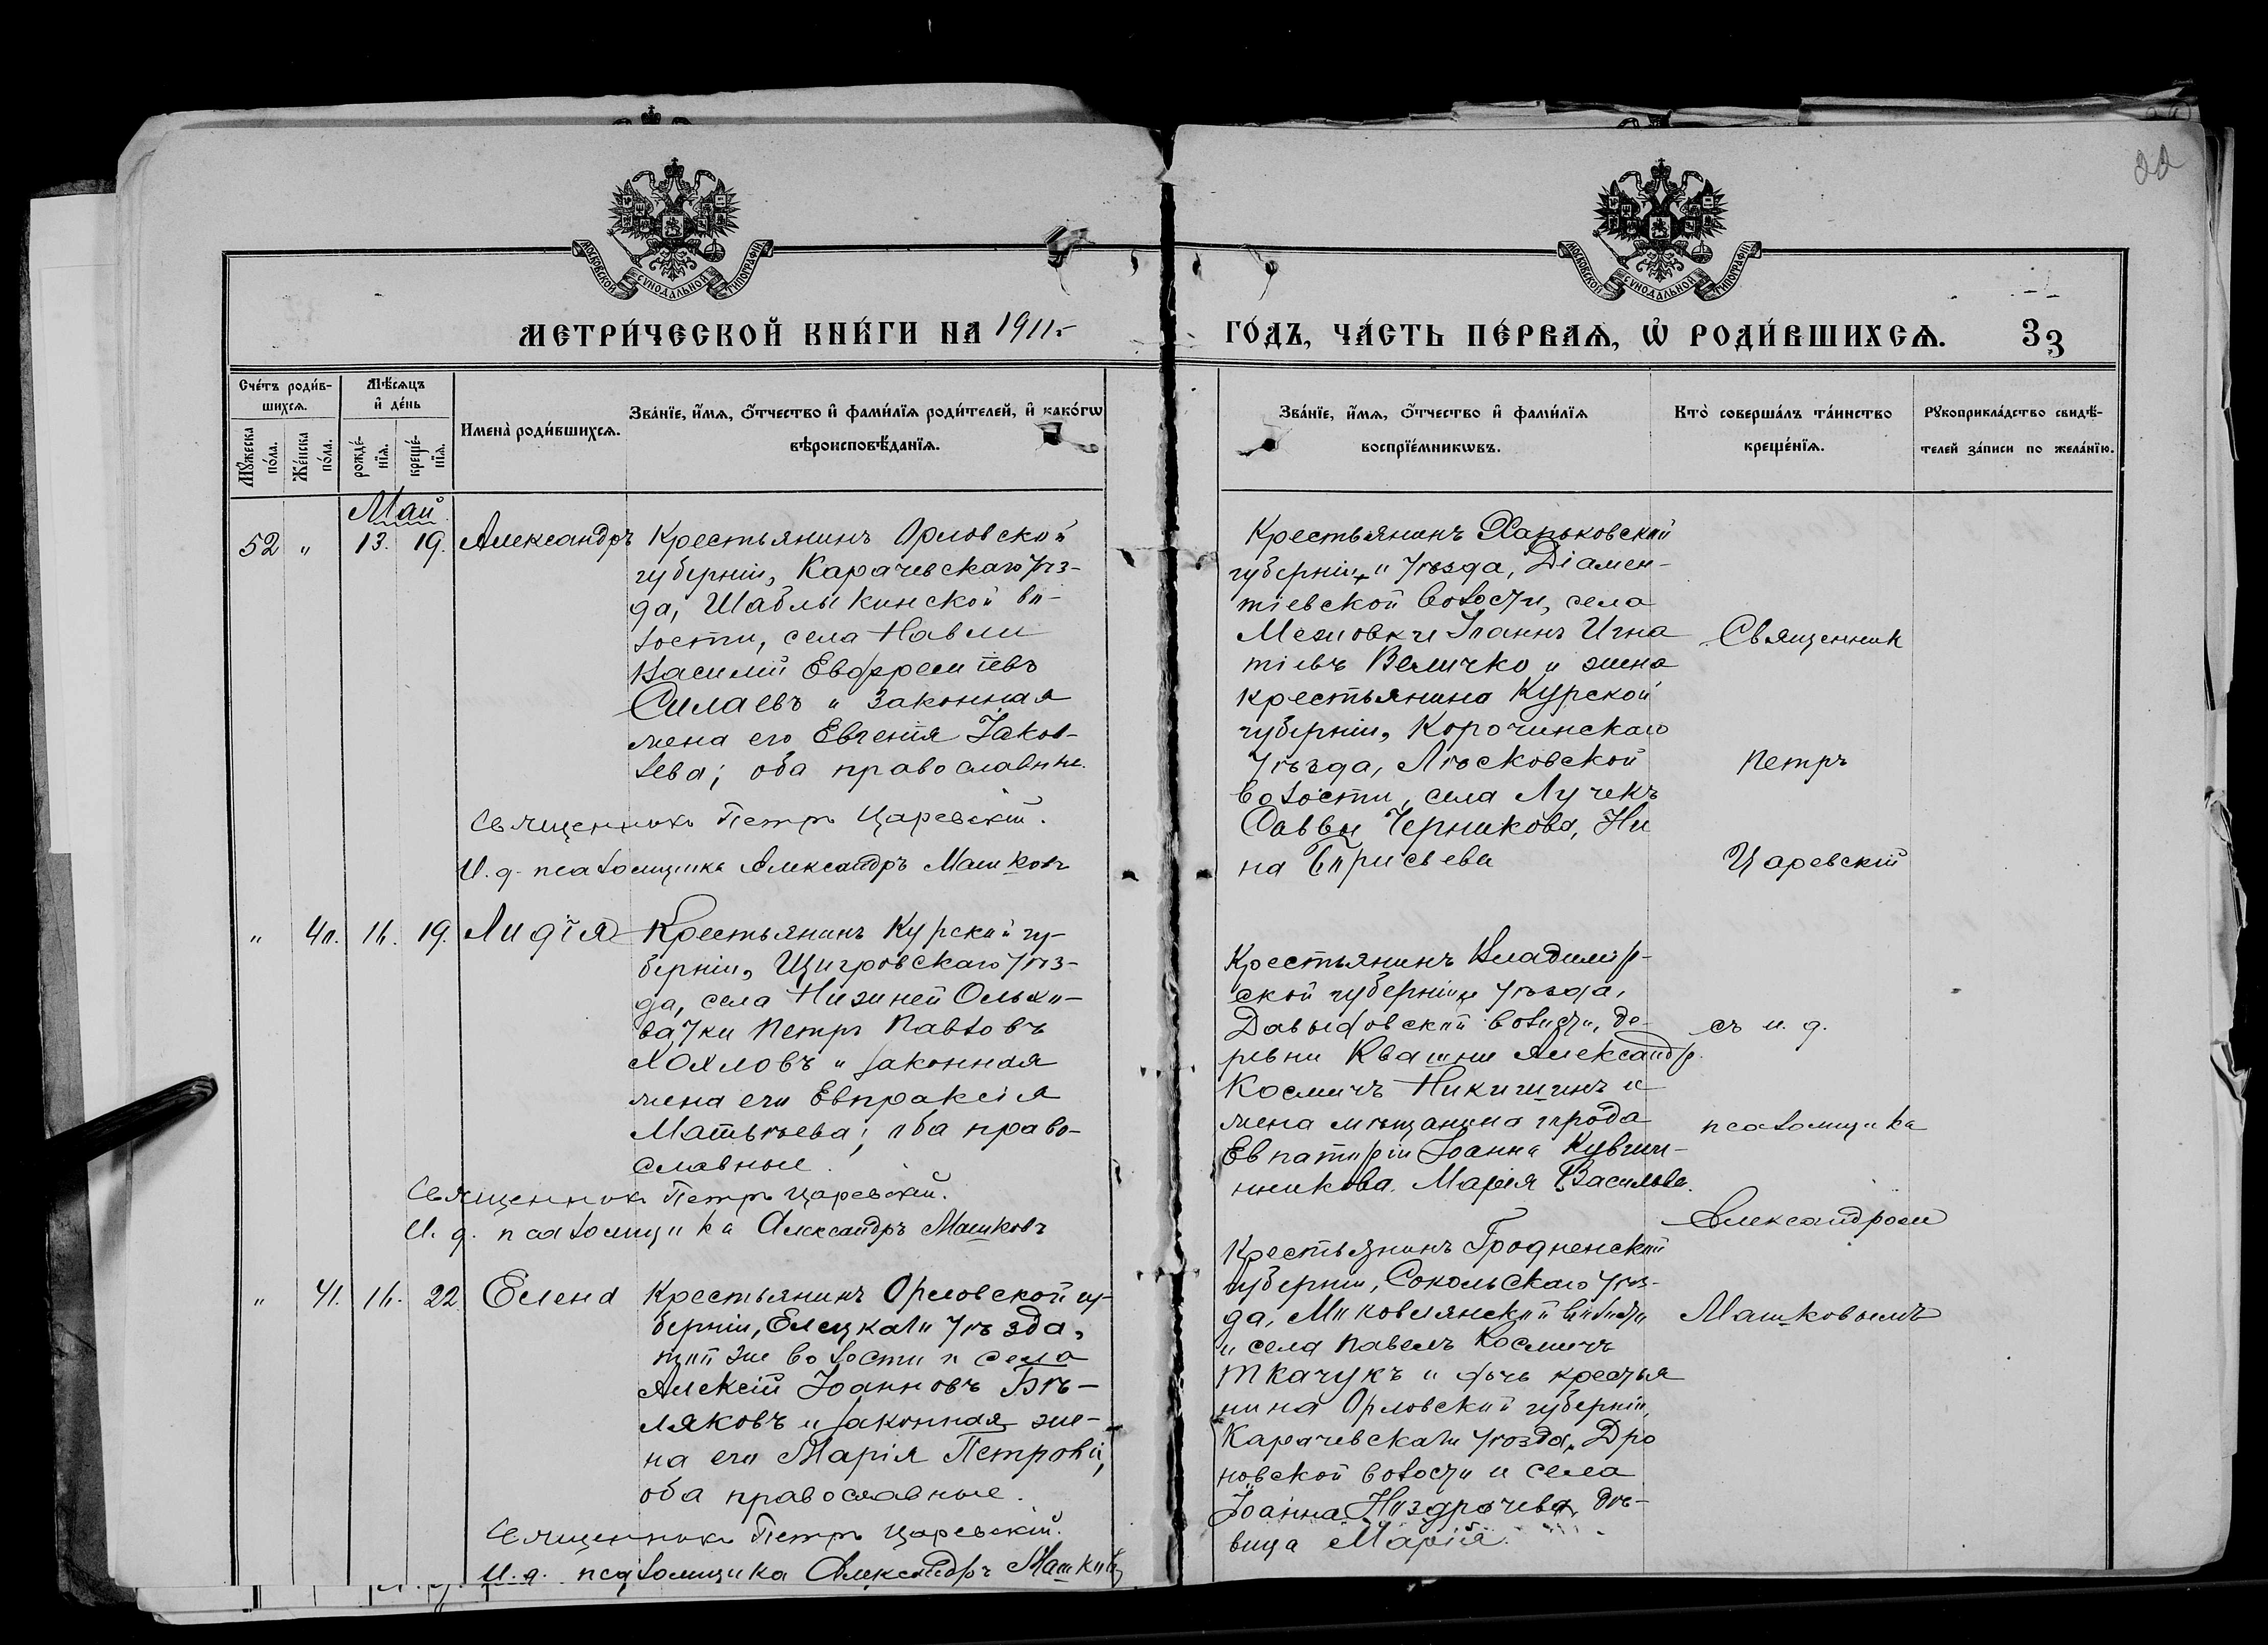 22
МОСКОВСКОЙ СѴНОДАЛЬНОЙ ТИПОГРАФІИ
МОСКОВСКОЙ СѴНОДАЛЬНОЙ ТИПОГРАФІИ
МЕТРИ́ЧЕСКОЙ КНИ́ГИ НА 1911 г.
ГО́ДЪ, ЧА́СТЬ ПЕ́РВАѦ, Ѡ҆ РОДИ́ВШИХСѦ. 33
Сче́тъ роди́в-
шихсѧ.
Мꙋ́жеска по́ла.
Же́нска по́ла.
Мѣ́сѧцъ
и҆ де́нь
рожде́-
нїѧ.
креще́-
нїѧ.
Имена̀ роди́вшихсѧ.
Зва́нїе, и҆́мѧ, ѻ҆́тчество и҆ фами́лїѧ роди́телей, и҆ како́гѡ
вѣроисповѣ́данїѧ.
Зва́нїе, и҆́мѧ, ѻ҆́тчество и҆ фами́лїѧ
воспрїе́мникѡвъ.
Кто̀ соверша́лъ та́инство
креще́нїѧ.
Рꙋкоприкла́дство свидѣ́-
телей за́писи по жела́нїю.
Май
52 " 13. 19. Александръ
Крестьянинъ Орловской
губерніи, Карачевскаго уѣз-
да, Шаблыкинской во-
лости, села Навли
Василий Евфремиевъ
Силаевъ и законная
жена его Евгенія Іаков-
лева; оба православные.
Священникъ Петръ Царевскій.
И. д. псаломщика Александръ Машковъ
Крестьянинъ Харьковской
губерніи и уѣзда, Діамен-
тіевской волости, села
Іоаннъ Игна
тіевъ Величко и жена
крестьянина Курской
губерніи, Корочинскаго
уѣзда, Лѣсковской
волости, села Лучекъ
Саввы Черникова, Ни
на Борисьева
Священник
Петръ
Царевскій
" 40. 16. 19. Лидія
Крестьянинъ Курской гу-
берніи, Щигровскаго уѣз-
да, села Нижней Ольхо-
ватки Петръ Павловъ
Хохловъ и законная
жена его Евпраксія
Матвѣева; оба право-
славные.
Священникъ Петръ Царевскій.
И. д. псаломщика Александръ Машковъ
Крестьянинъ Владимір-
ской губерніи и уѣзда,
Давыдовской волости, де-
ревни Квашни Александр.
Космичъ Никишинъ и
жена мѣщанина города
Евпаторіи Іоанна Кувшин-
никова. Марія Васильева.
съ и. д.
псаломщика
Александромъ
Машковымъ
" 41. 16. 22. Елена
Крестьянинъ Орловской гу-
берніи, Елецкаго уѣзда,
той же волости и села
Алексій Іоанновъ Бѣ-
ляковъ и законная же-
на его Марія Петрова,
оба православные.
Священникъ Петръ Царевскій.
И. д. псаломщика Александръ Машковъ
Крестьянинъ Гродненской
губерніи, Сокольскаго уѣз-
да, волости
и села Павелъ Космичъ
Ткачукъ и дочь крестья
нина Орловской губерніи,
Карачевскаго уѣзда, Дро
новской волости и села
Іоанна Ноздрачева, дѣ-
вица Марія.